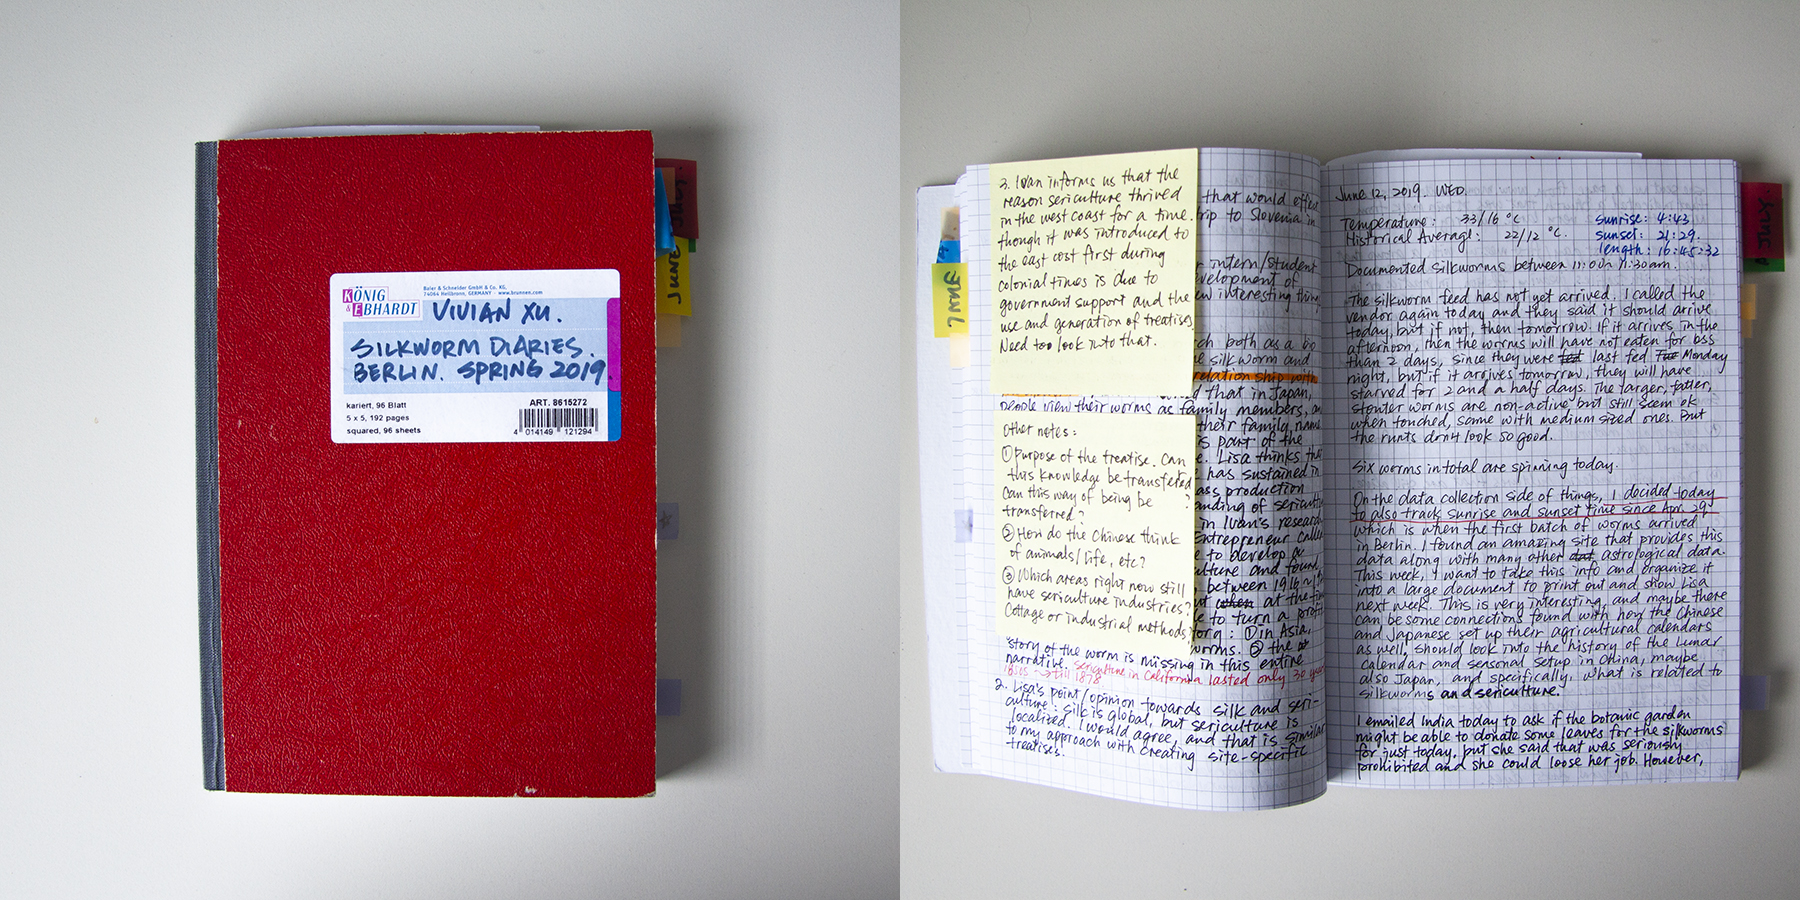 KÖNIG
& EBHARDT
Baier & Schneider GmbH & Co. KG,
74064 Heilbronn, GERMANY - www.brunnen.com
VIVIAN XU.
SILKWORM DIARIES.
BERLIN. SPRING 2019
kariert, 96 Blatt
5 x 5, 192 pages
squared, 96 sheets
ART. 8615272
4 014149 121294
JULY
JUNE
3. Ivan informs us that the
reason sericulture thrived
in the west coast for a time.
though it was introduced to
the east cost first during
colonial times is due to
government support and the
use and generation of treatises.
Need too look into that.
that would effect
trip to Slovenia in
intern/student
development of
new interesting thing
both as a bo
silkworm and
relationship with
that in Japan,
people view their worms as family members, an
their family name
is part of the
Lisa thinks tha
has sustained in
mass production
standing of sericu
in Ivan's research
Entrepreneur calle
to develop a
culture and found
between 1916
at the time
to turn a profit
① in Asia,
worms. ② the
Other notes:
① Purpose of the treatise. Can
this knowledge be transfered
Can this way of being be ?
transferred?
② How do the Chinese think
of animals/life, etc?
③ Which areas right now still
have sericulture industries?
Cottage or industrial methods?
story of the worm is missing in this entire
narrative. sericulture in California lasted only 30 year
till 1878
2. Lisa's point/opinion towards silk and seri-
culture: silk is global, but sericulture is
localized. I would agree, and that is similar
to my approach with creating site-specific
treatises.
June 12, 2019. WED.
Temperature: 33/16 °C
Historical Average: 22/12 °C.
sunrise: 4:43
sunset: 21:29.
length: 16:45:32
Documented silkworms between 11:00~11:30am.
The silkworm feed has not yet arrived. I called the
vendor again today and they said it should arrive
today, but if not, then tomorrow. If it arrives in the
afternoon, then the worms will have not eaten for bss
than 2 days, since they were last fed Monday
night, but if it arrives tomorrow, they will have
starved for 2 and a half days. The larger, fatter,
stouter worms are non-active but still seem ok
when touched, same with medium sized ones. But
the runts don't look so good.
Six worms in total are spinning today.
On the data collection side of things, I decided today
to also track sunrise and sunset time since Apr. 29,
which is when the first batch of worms arrived
in Berlin. I found an amazing site that provides this
data along with many other astrological data.
This week, I want to take this info and organize it
into a large document to print out and show Lisa
next week. This is very interesting, and maybe there
can be some connections found with how the Chinese
and Japanese set up their agricultural calendars
as well, should look into the history of the Lunar
calendar and seasonal setup in China, maybe
also Japan, and specifically, what is related to
silkworms and sericulture.
I emailed India today to ask if the botanic garden
might be able to donate some leaves for the silkworms
for just today, but she said that was seriously
prohibited and she could loose her job. However,
JULY
JUNE